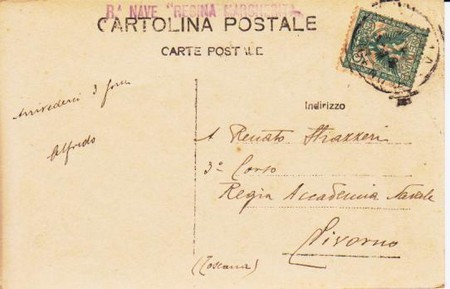 Rª NAVE "REGINA MARGHERITA"
CARTOLINA POSTALE
CARTE POSTALE
Arrivederci 3
Alfredo
Indirizzo
A Renato Strazzeri
3º Corso
Regia Accademia Navale
Livorno
(Toscana)